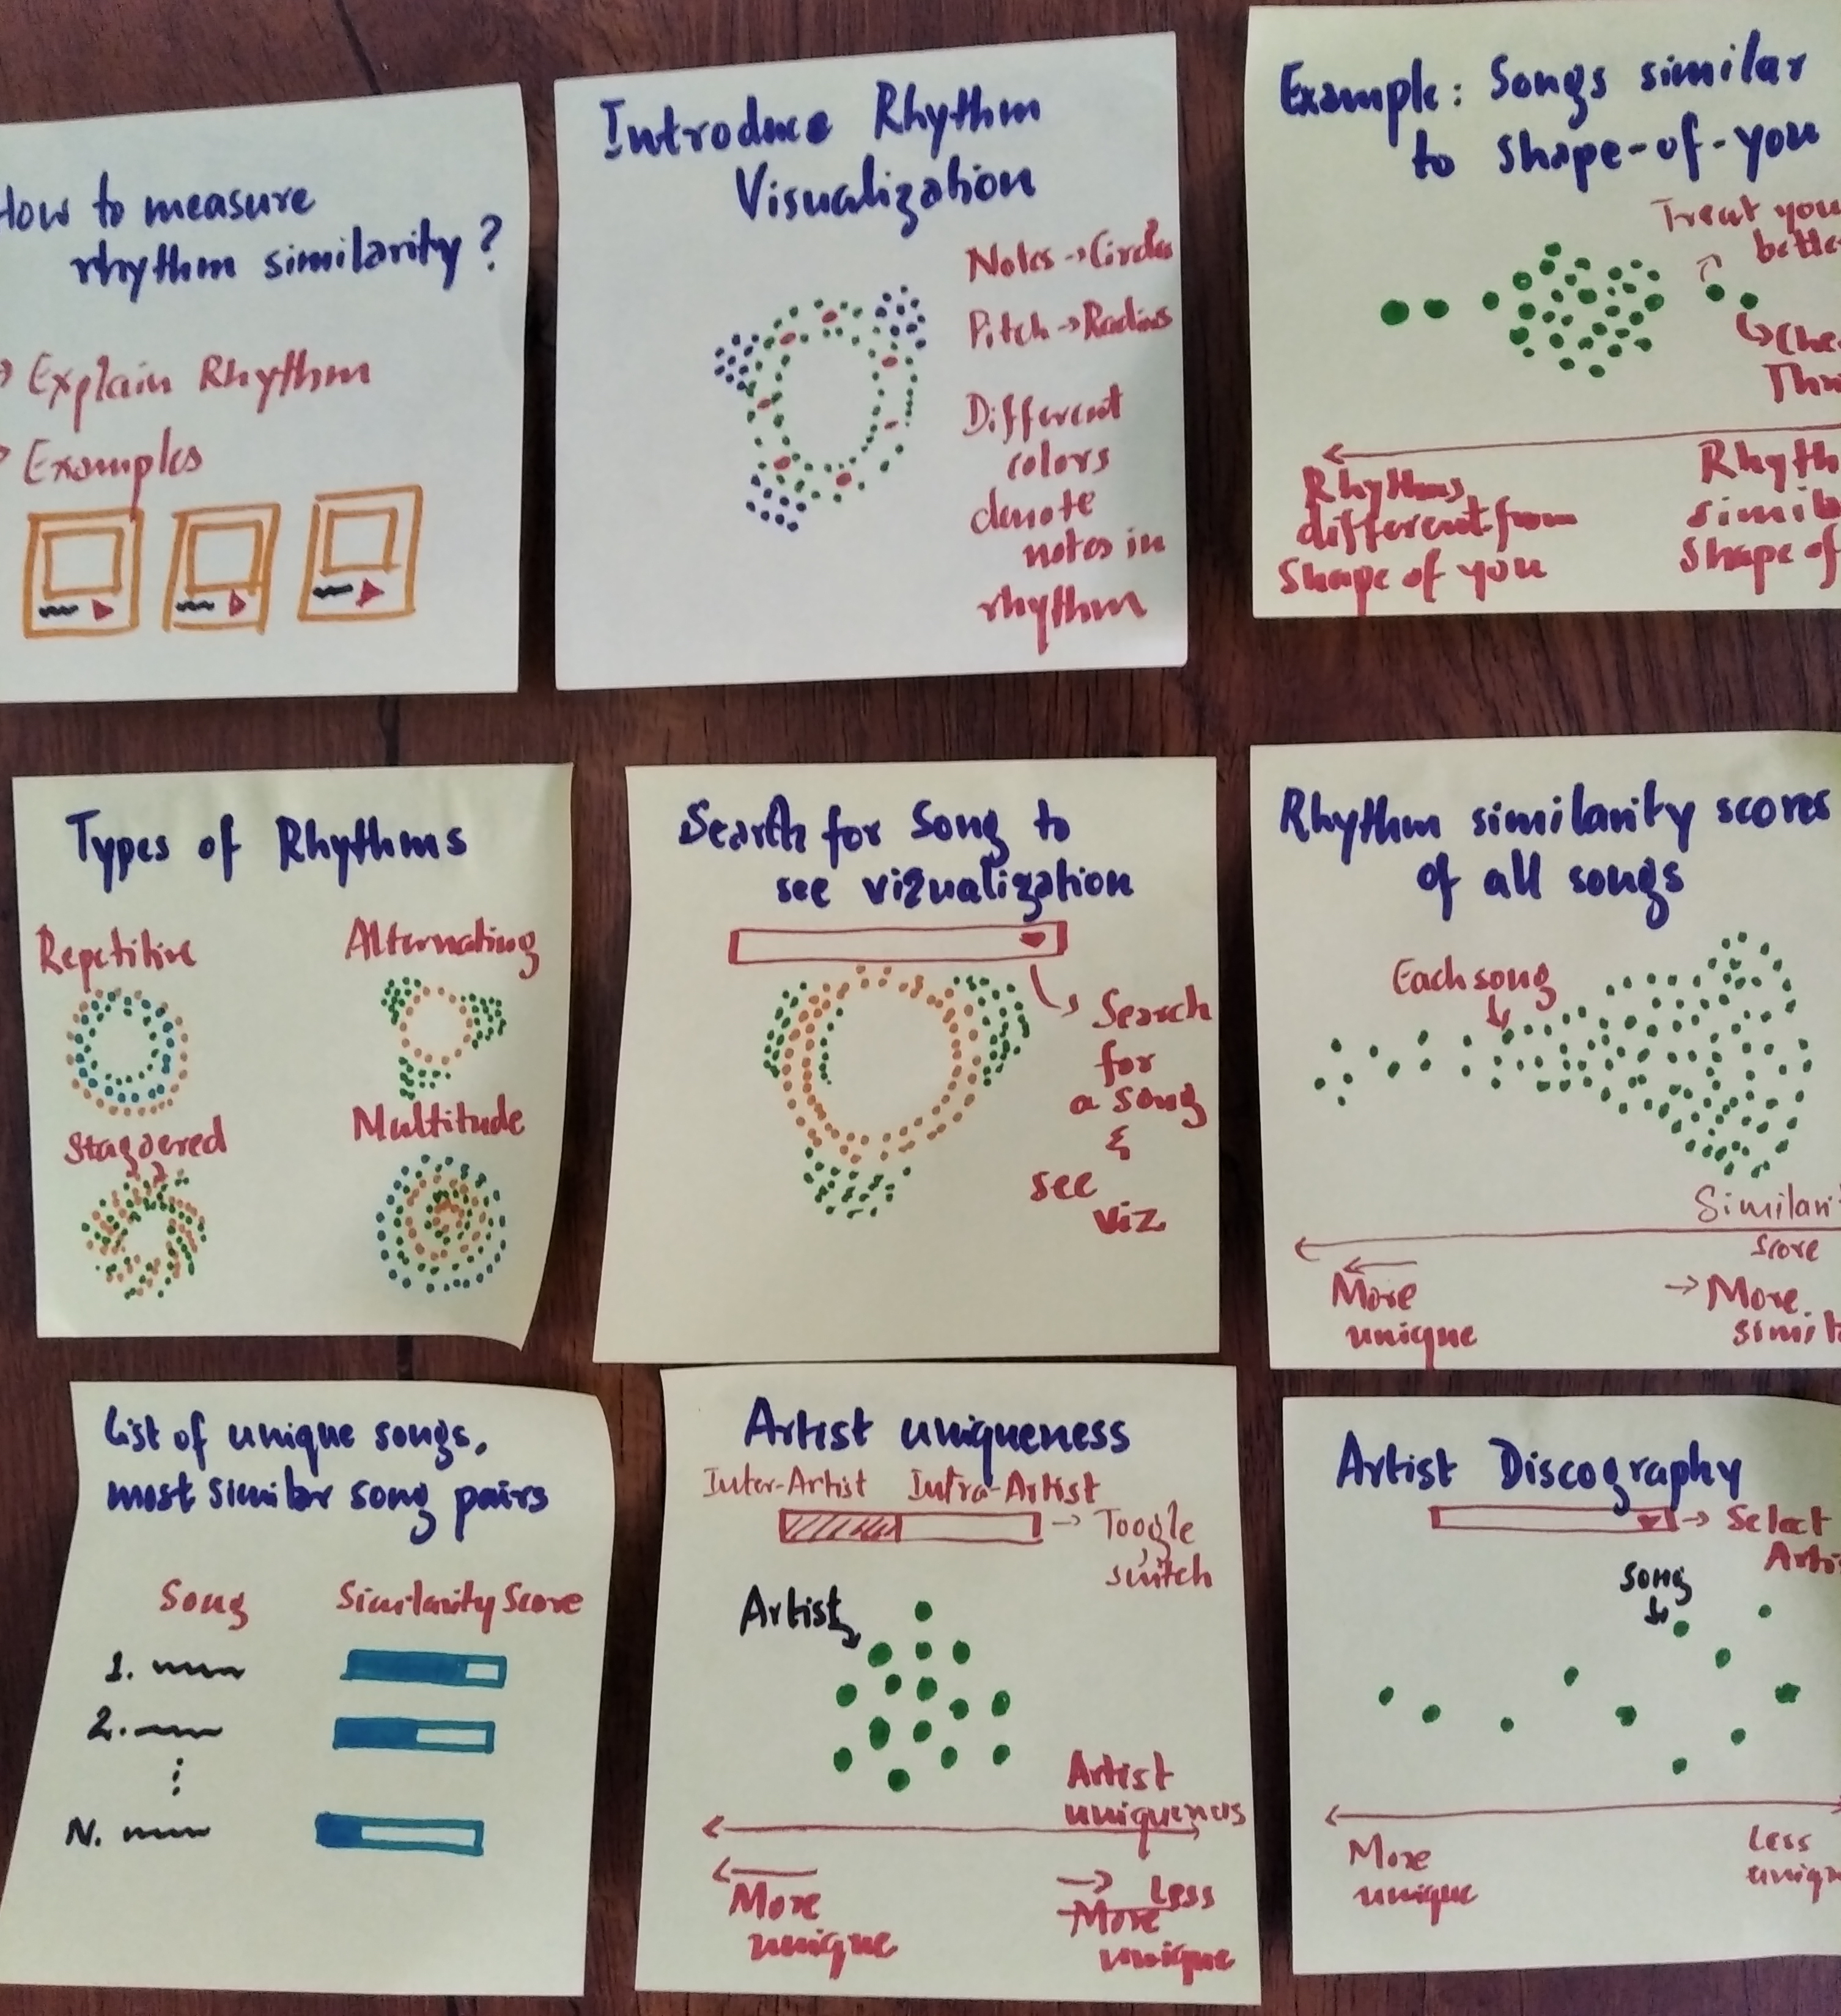 How to measure
rhythm similarity?
→ Explain Rhythm
→ Examples
Introduce Rhythm
Visualization
Notes → Circles
Pitch → Radius
Different
colors
denote
notes in
rhythm
Example: Songs similar
to shape-of-you
Treat you
better
Rhythms
different from
Shape of you
Shape of
Types of Rhythms
Repetitive
Alternating
Staggered
Multitude
Search for Song to
see vizualization
Search
for
a song
&
see
viz
Rhythm similarity scores
of all songs
Each song
Score
More
unique
→ More
List of unique songs,
most similar song pairs
Song
Similarity Score
1.
2.
N.
Artist uniqueness
Inter-Artist Intra-Artist
→ Toogle
switch
Artist
Artist
uniqueness
More
unique
→ Less
More
unique
Artist Discography
→ Select
Song
More
unique
Less